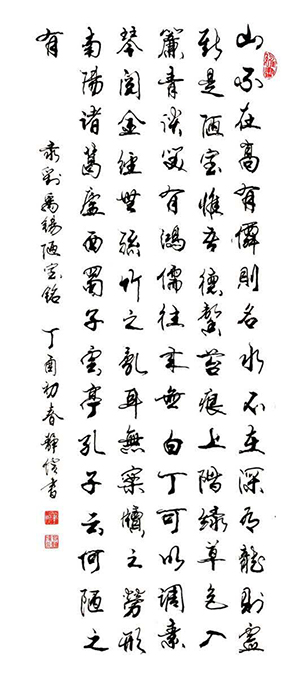 山不在高有僊則名水不在深有龍則靈
斯是陋室惟吾德馨苔痕上階綠草色入
簾青談笑有鴻儒往來無白丁可以調素
琴閱金經無絲竹之亂耳無案牘之勞形
南陽諸葛廬西蜀子雲亭孔子云何陋之
有
录劉禹錫陋室銘 丁酉初春靜書